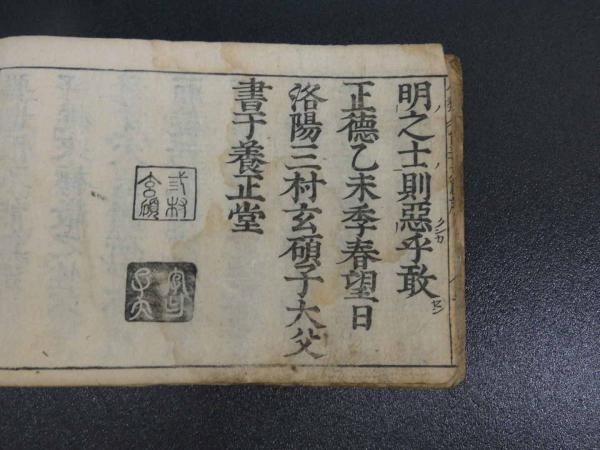 明之士則惡乎敢
正德乙未季春望日
洛陽三村玄碩子大父
書于養正堂
弎村玄碩